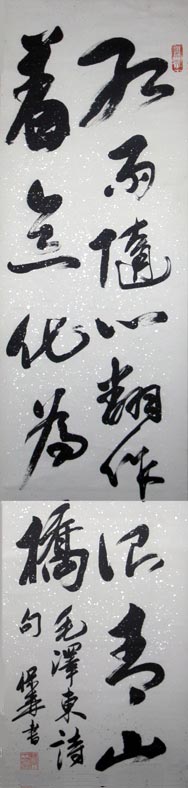 紅雨隨心翻作浪青山
着意化為橋
毛澤東詩
句 保 書